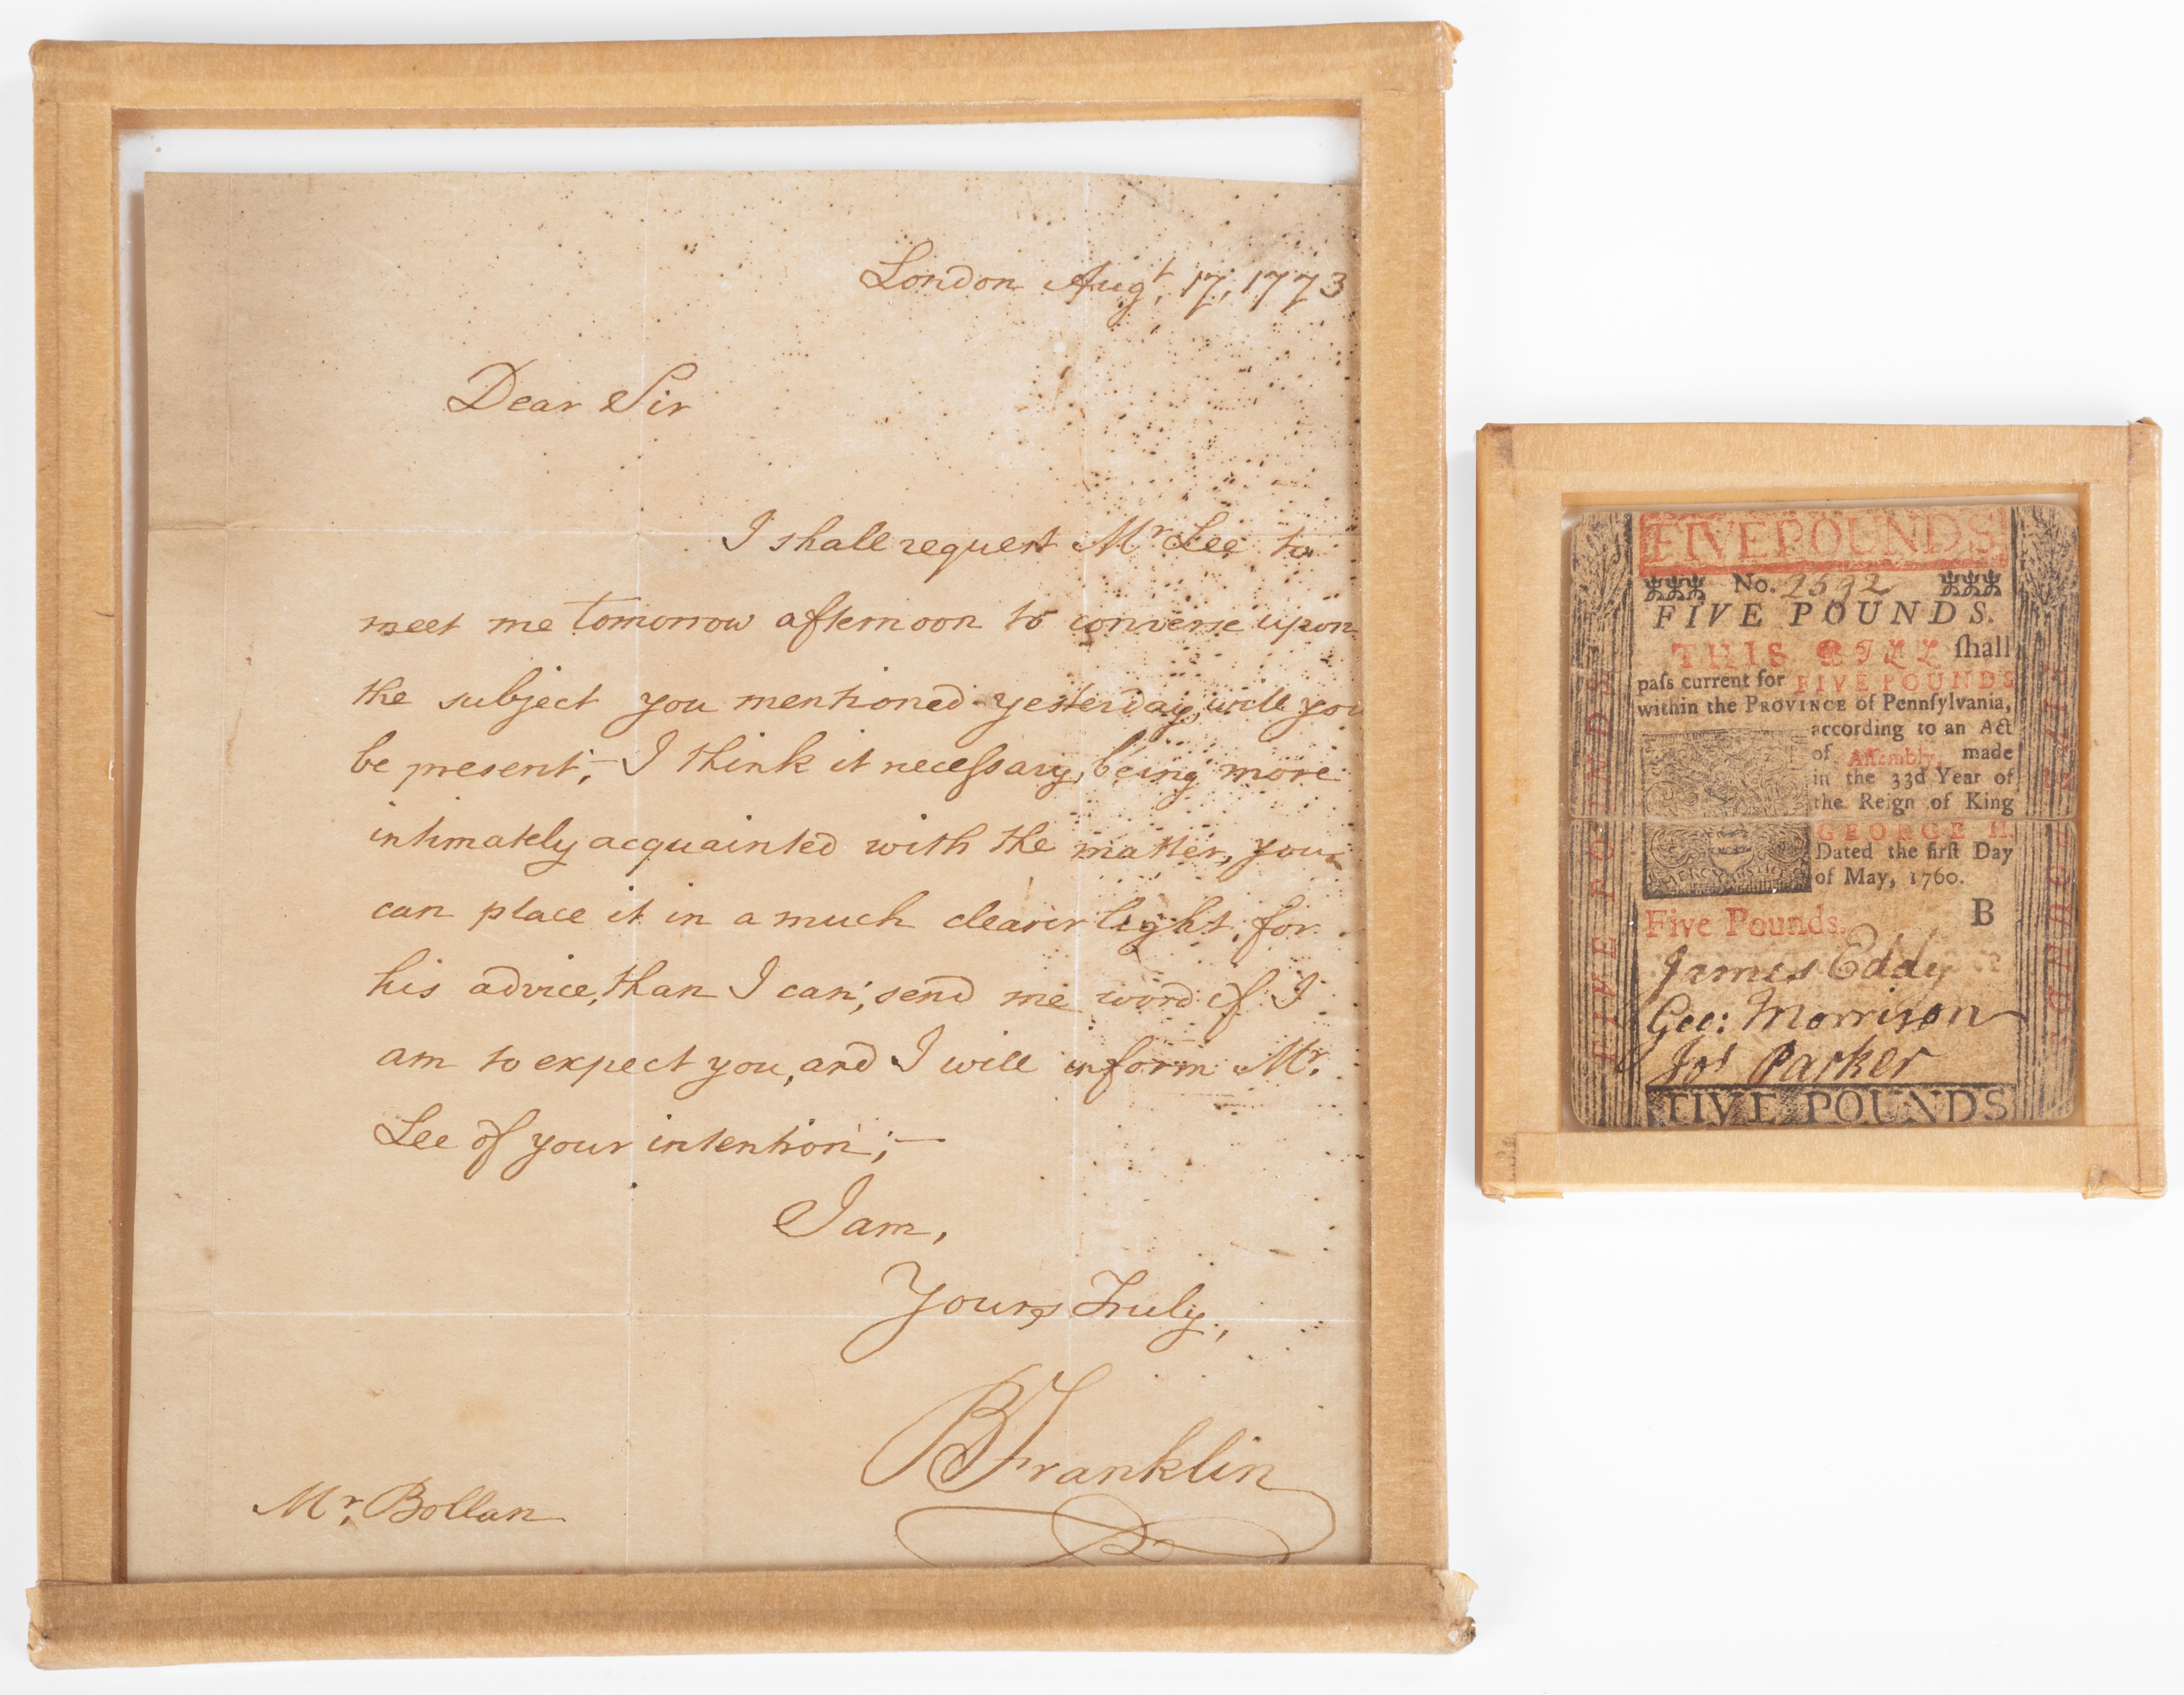 London Augt, 17, 1773
Dear Sir
I shall request Mr Lee to
meet me tomorrow afternoon to converse upon
the subject you mentioned yesterday, will you
be present; I think it neceſsary, being more
intimately acquainted with the matter, you
can place it in a much clearer light, for
his advice, than I can; send me word if I
am to expect you, and I will inform Mr.
Lee of your intention;—
I am,
Yours Truly,
BFranklin
Mr. Bollan
FIVE POUNDS
No. 2592
FIVE POUNDS.
THIS BILL ſhall
paſs current for FIVE POUNDS
within the PROVINCE of Pennſylvania,
according to an Act
of Aſſembly, made
in the 33d Year of
the Reign of King
GEORGE II.
Dated the firſt Day
of May, 1760.
MERCY JUSTICE
Five Pounds. B
James Eddy
Geo: Morrison
Jos Parker
FIVE POUNDS
FIVE POUNDS
FIVE POUNDS